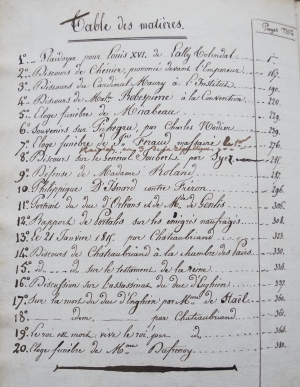 Table des matières.
Pages
1º Plaidoyer pour Louis XVI. de Lally Tolendal 1.
2º Discours de Chenier, prononcé devant l'Empereur 167.
3º Discours du Cardinal Maury à l'Institut 179.
4º Discours de Robespierre à la Convention
5. Eloge funèbre de Mirabeau
6. Souvenirs sur Pichegru, par Charles Nodier
7º Eloge funèbre de
8º Discours sur le Général Joubert, par
9º Défense de Madame Roland
10. Philippique d'Isnard contre Fréron 296.
11º Portrait du duc d'Orléans et de Mme de Genlis 305.
12º Rapport de Portalis sur les émigrés naufragés 318.
13. Le 21 Janvier 1815. par Chateaubriand 330.
14º Discours de Chateaubriand à la chambre des Pairs 336.
15. id. id. sur le testament de la reine
16. Discussion sur l'assassinat du duc d'Enghien
17º Sur la mort du duc d'Enghien par Mme de Staël 360.
18º idem. par Chateaubriand
19. Le roi est mort, vive le roi par id.
20. Eloge funèbre de Mme Dufrénoy 380.